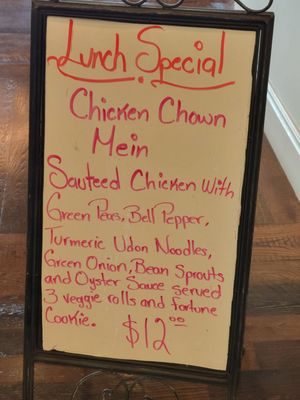 Lunch Special
Chicken Chown
Mein
Sauteed Chicken With
Green Peas, Bell Pepper,
Turmeric Udon Noodles,
Green Onion, Bean Sprouts
and Oyster Sauce served
3 veggie rolls and fortune
Cookie. $12.00